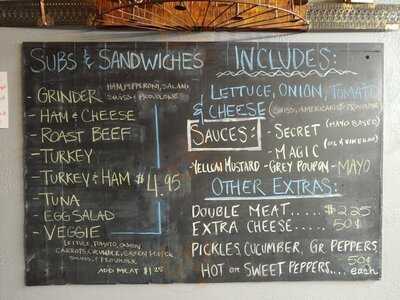 SUBS & SANDWICHES
- GRINDER HAM, PEPPERONI, SALAMI
SWISS & PROVOLONE
- HAM & CHEESE
- ROAST BEEF
- TURKEY
- TURKEY & HAM $4.95
- TUNA
- EGG SALAD
- VEGGIE
LETTUCE, TOMATO, ONION
CARROTS, CUCUMBER, GREEN PEPPER
SWISS & PROVOLONE
ADD MEAT $1.25
INCLUDES:
LETTUCE, ONION, TOMATO
& CHEESE (SWISS, AMERICAN OR PROVOLONE)
SAUCES: - SECRET (MAYO BASED)
- MAGIC (OIL & VINEGAR)
- YELLOW MUSTARD - GREY POUPON - MAYO
OTHER EXTRAS:
DOUBLE MEAT..... $2.25
EXTRA CHEESE..... 50¢
PICKLES, CUCUMBER, GR PEPPERS
HOT OR SWEET PEPPERS.... 50¢ each